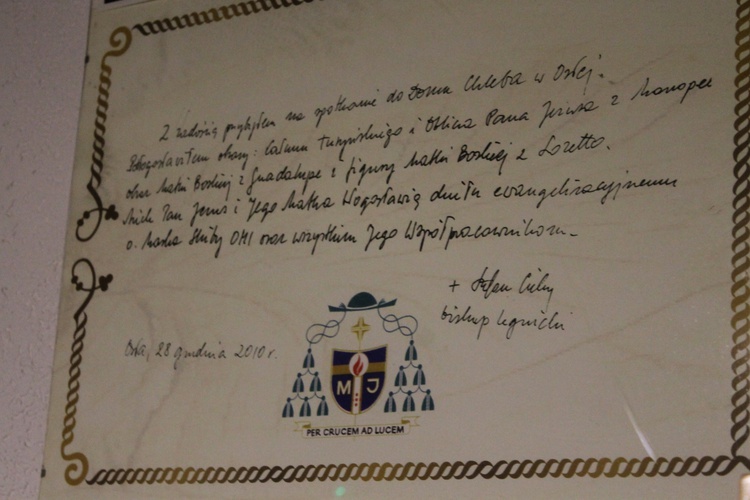 Z radością przybyłem na spotkanie do Domu Chleba w Osłej.
Błogosławiłem obrazy: Całunu Turyńskiego i Oblicza Pana Jezusa z Manopello
oraz Matki Boskiej z Guadalupe i figurę Matki Boskiej z Loretto.
Niech Pan Jezus i Jego Matka błogosławią dziełu ewangelizacyjnemu
o. Marka OMI oraz wszystkim Jego Współpracownikom.
+ Stefan Cichy
biskup legnicki
Osła, 28 grudnia 2010 r.
M J
PER CRUCEM AD LUCEM